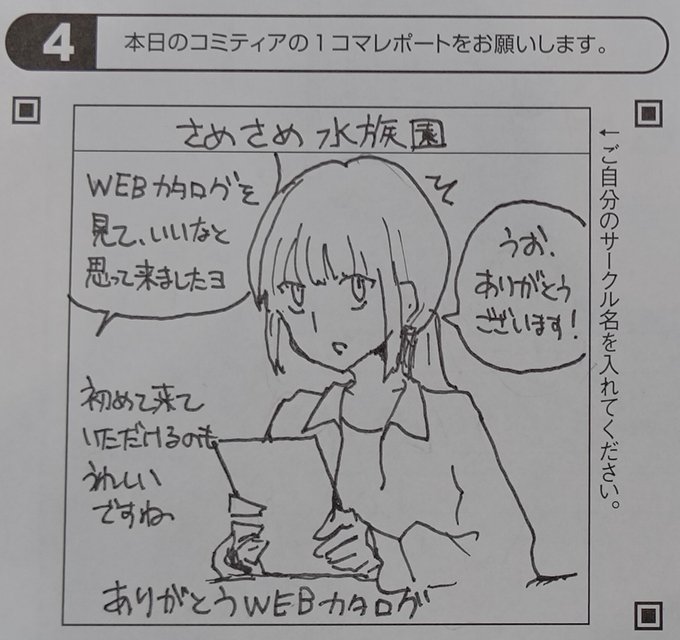 4
本日のコミティアの1コマレポートをお願いします。
←ご自分のサークル名を入れてください。
さめさめ水族園
WEBカタログを
見て、いいなと
思って来ましたヨ
うお、
ありがとう
ございます!
初めて来て
いただけるのも
うれしい
ですね
ありがとうWEBカタログ